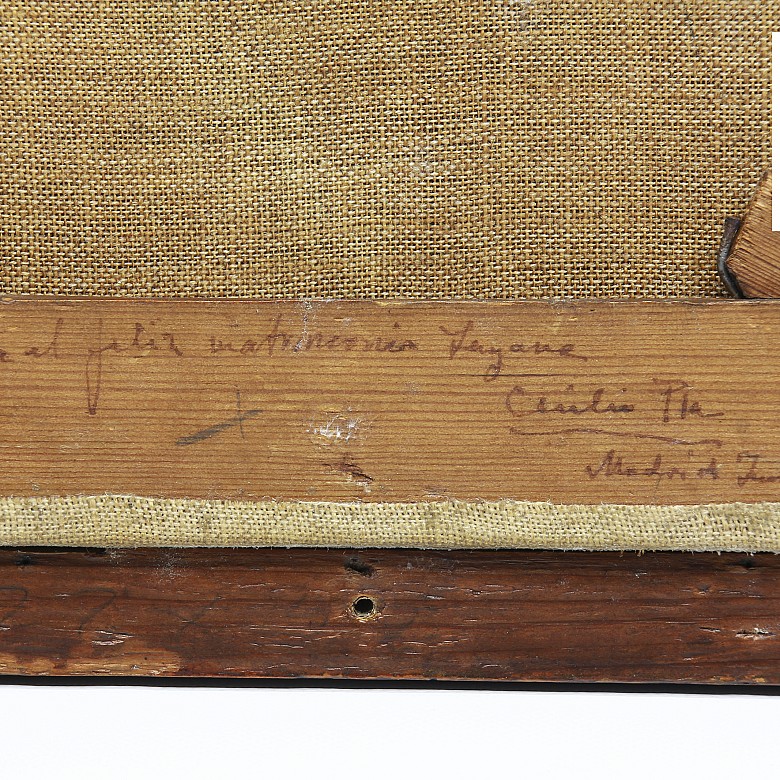 al feliz matrimonio Layana
Cecilio Pla
Madrid